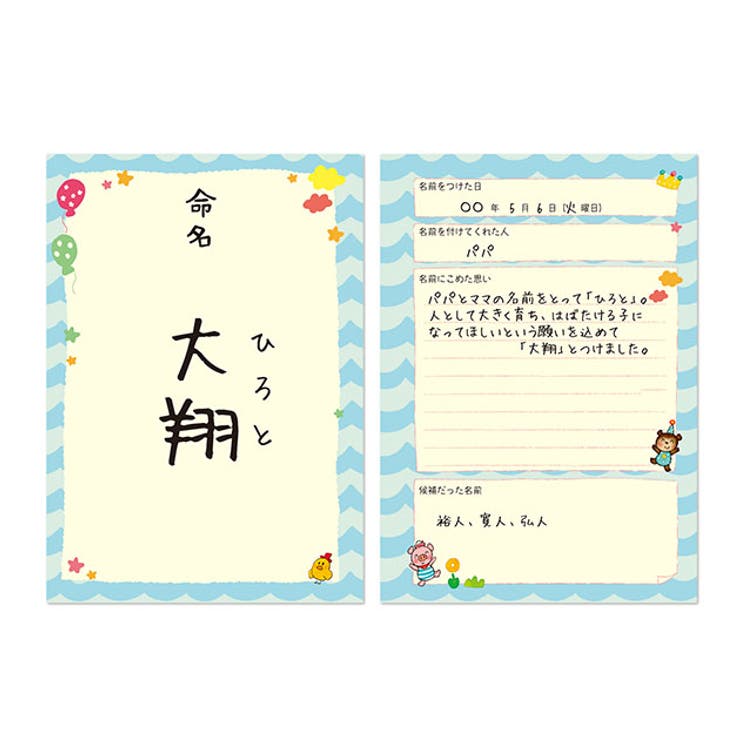 命名
大翔
ひろと
名前をつけた日
〇〇年 5月6日(火曜日)
名前を付けてくれた人
パパ
名前にこめた思い
パパとママの名前をとって「ひろと」。
人として大きく育ち、はばたける子に
なってほしいという願いを込めて
「大翔」とつけました。
候補だった名前
裕人、寛人、弘人